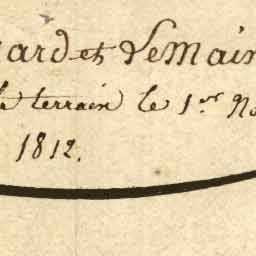 ard et Lemain
terrain le 1er No
1812.